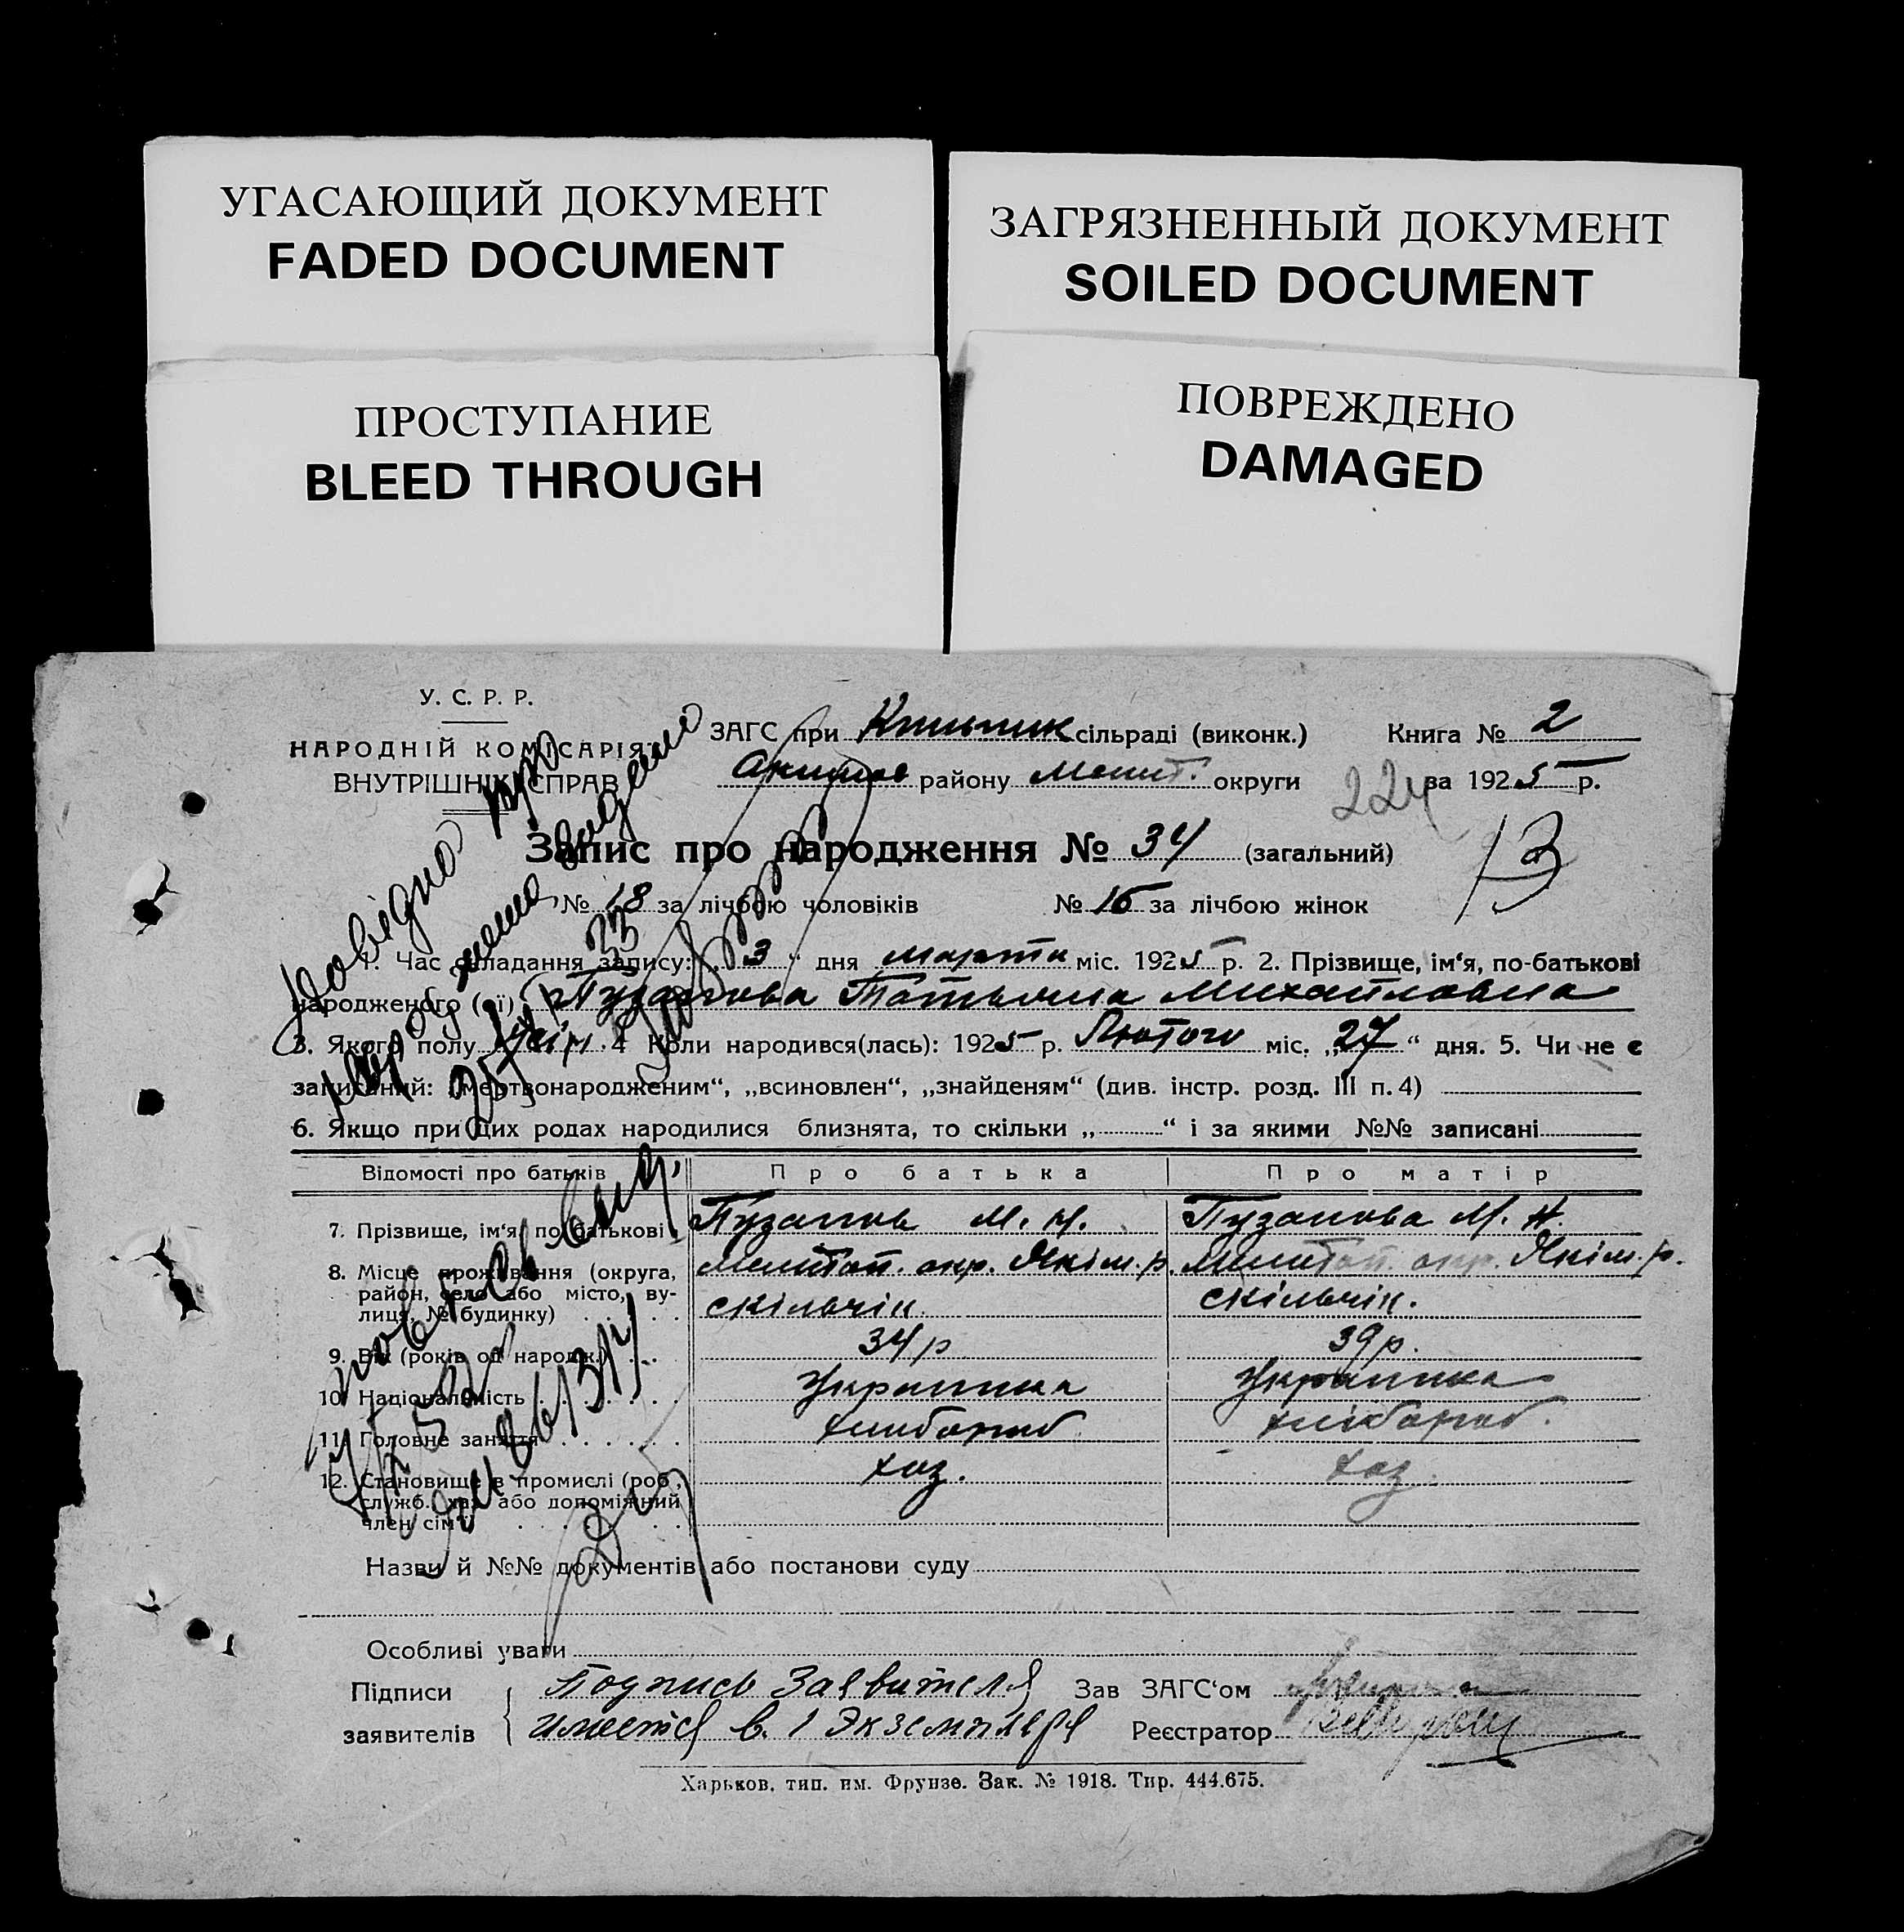 УГАСАЮЩИЙ ДОКУМЕНТ
FADED DOCUMENT
ЗАГРЯЗНЕННЫЙ ДОКУМЕНТ
SOILED DOCUMENT
ПРОСТУПАНИЕ
BLEED THROUGH
ПОВРЕЖДЕНО
DAMAGED
У. С. Р. Р.
НАРОДНІЙ КОМІСАРІЯТ
ВНУТРІШНІХ СПРАВ
ЗАГС при сільраді (виконк.) Книга № 2
району Мелит. округи за 1925 р.
224
13
Запис про народження № 34 (загальний)
№ 18 за лічбою чоловіків № 16 за лічбою жінок
1. Час складання запису: „3“ дня марта міс. 1925 р. 2. Прізвище, ім‘я, по-батькові
народженого (ої) Пузанова Татьяна Михайловна
3. Якого полу 4 Коли народився(лась): 1925 р. Лютого міс. „27“ дня. 5. Чи не є
записаний: „мертвонародженим“, „всиновлен“, „знайденям“ (див. інстр. розд. III п. 4)
6. Якщо при цих родах народилися близнята, то скільки „ “ і за якими №№ записані
Відомості про батьків Про батька Про матір
7. Прізвище, ім‘я, по-батькові Пузанов М. И. Пузанова М. Н.
8. Місце проживання (округа, район, село або місто, вулиця, № будинку) Мелитоп. окр. Якім. р. Мелитоп. окр. Якім. р.
9. Вік (років од народж.) 34 р 39 р.
10. Національність Українка Українка
11. Головне заняття хлибороб хлібороб.
12. Становище в промислі (роб., служб., хаз. або допоміжний член сім‘ї) хаз. хаз.
Назви й №№ документів або постанови суду
Особливі уваги
Підписи Подпись Заявителя Зав ЗАГС‘ом
заявителів имеется в. 1 Экземпляре Реєстратор
Харьков, тип. им. Фрунзе. Зак. № 1918. Тир. 444.675.